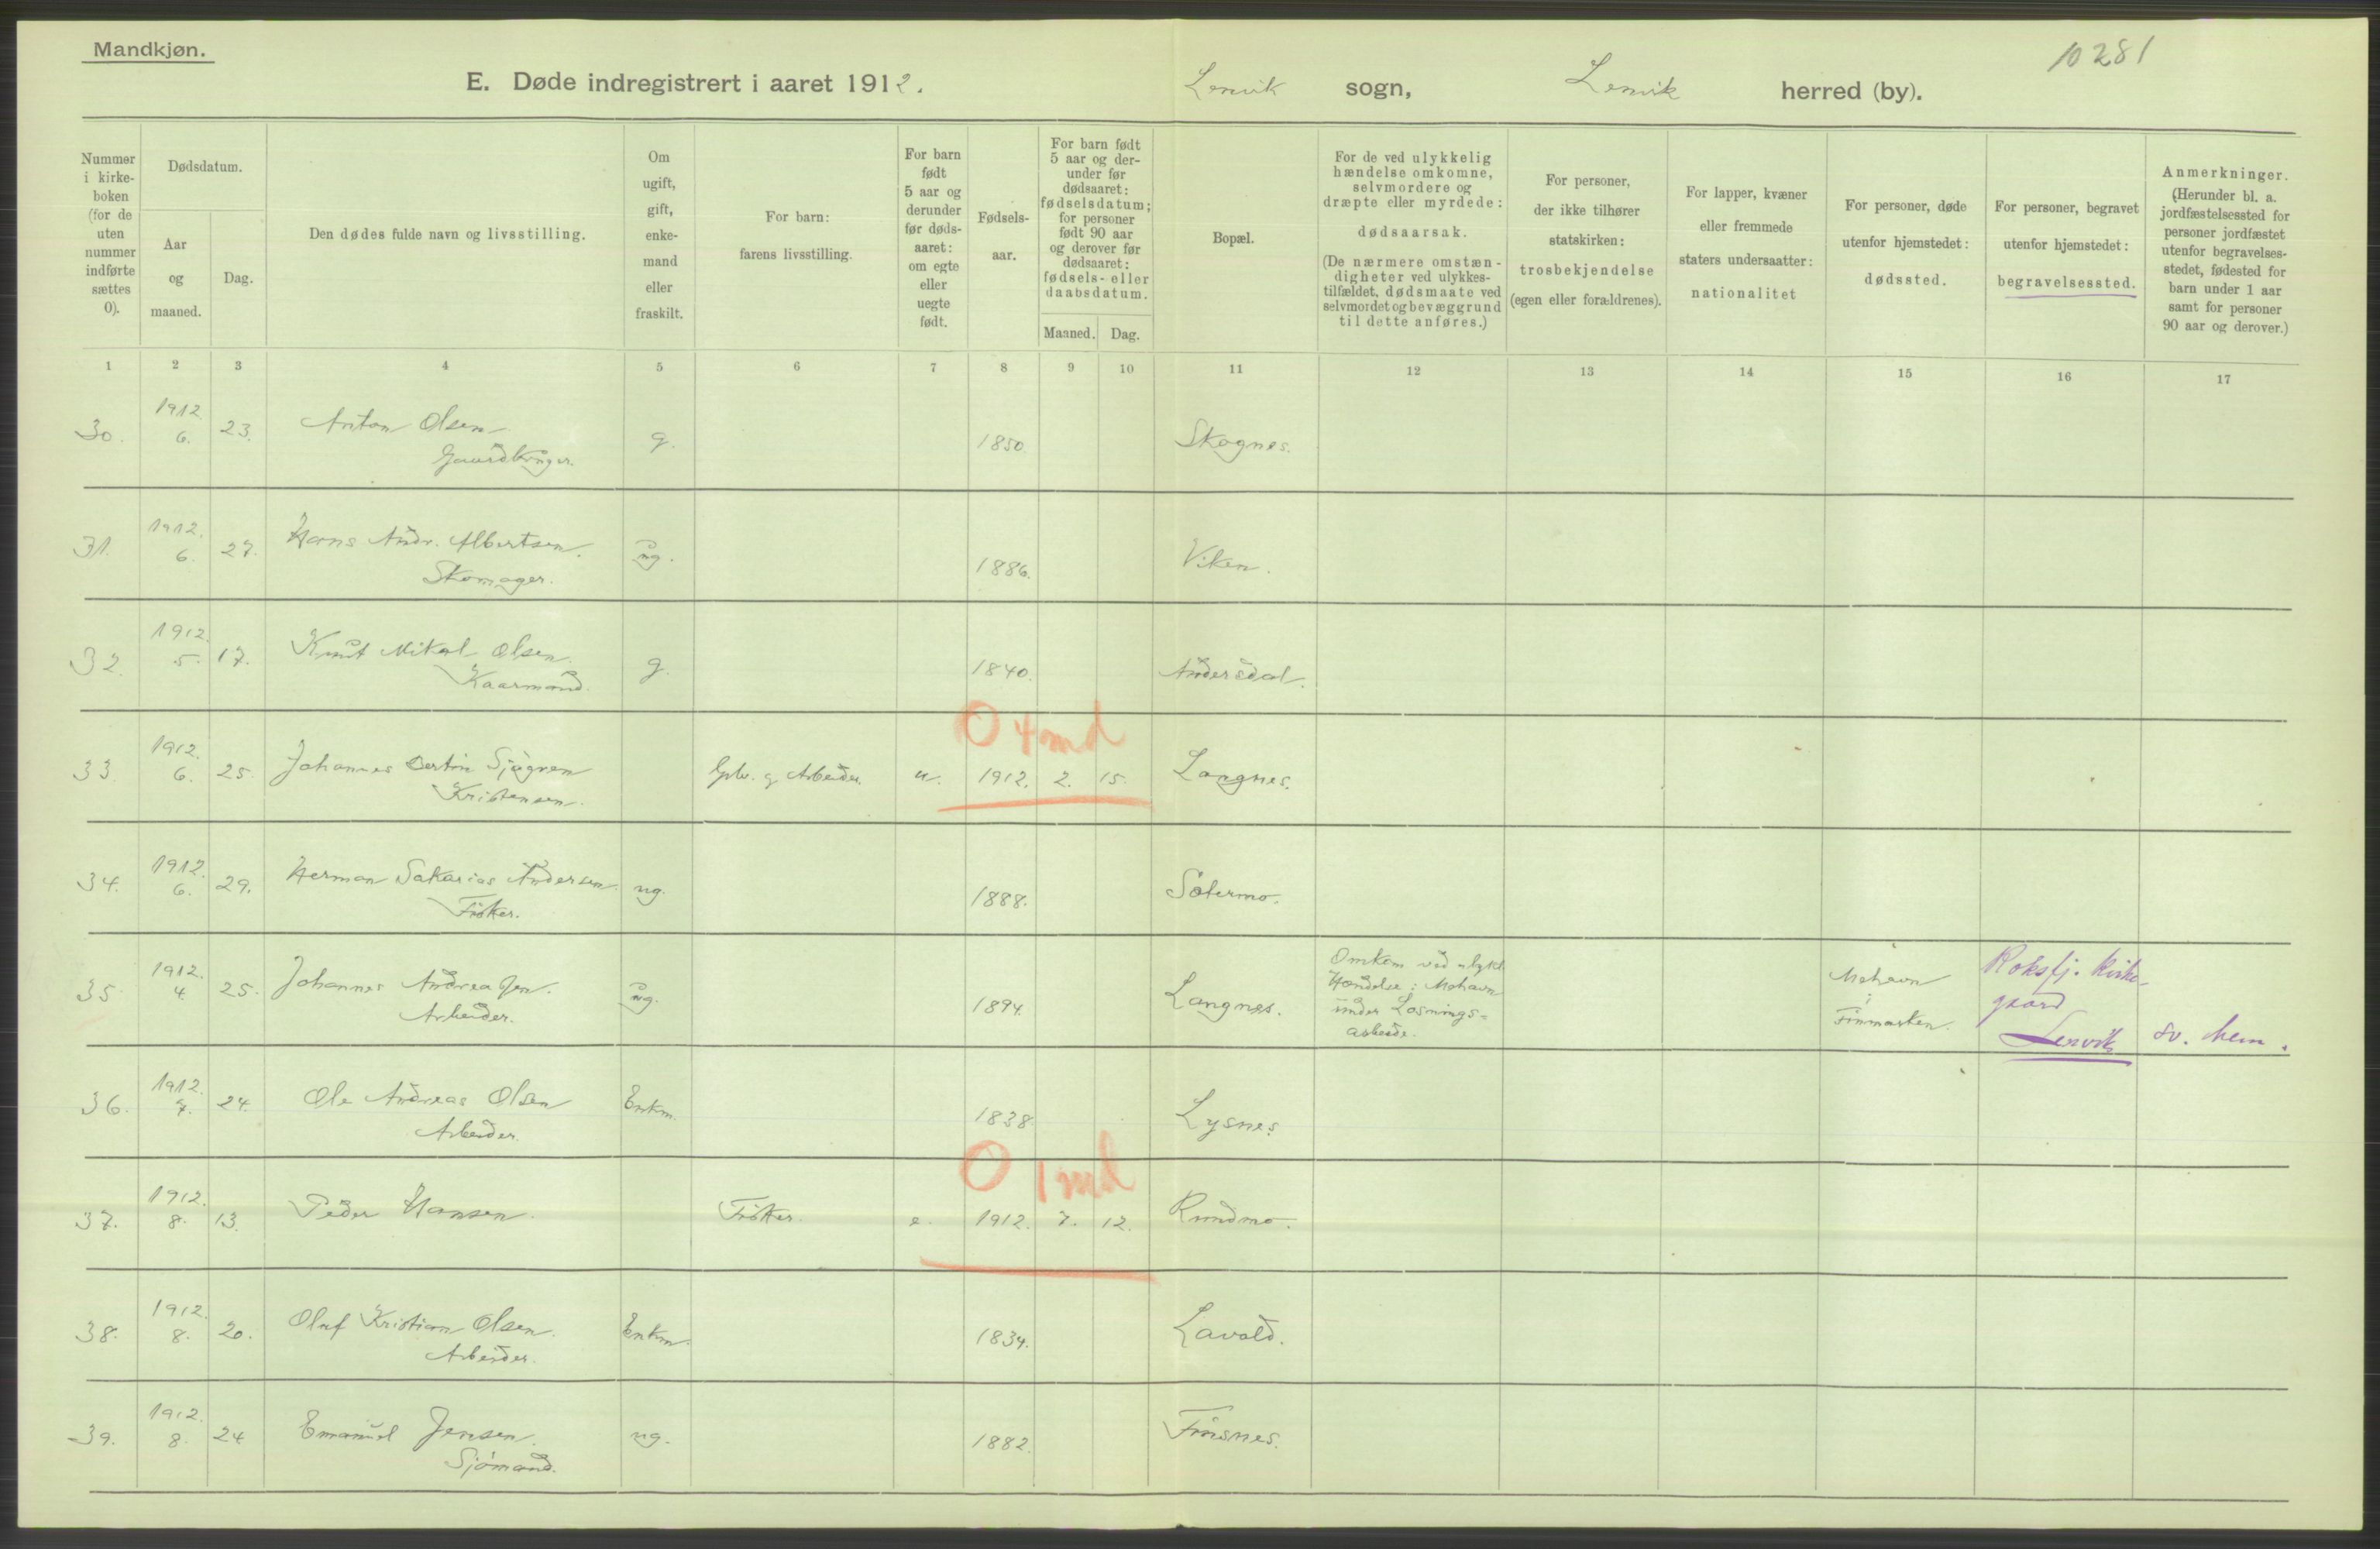 Mandkjøn.
10281
E. Døde indregistrert i aaret 1912. Lenvik sogn, Lenvik herred (by).
Nummer i kirke- boken (for de uten nummer indførte sættes 0).
Dødsdatum.
Aar og maaned.
Dag.
Den dødes fulde navn og livsstilling.
Om ugift, gift, enke- mand eller fraskilt.
For barn: farens livsstilling.
For barn født 5 aar og derunder før døds- aaret: om egte eller uegte født.
Fødsels- aar.
For barn født 5 aar og der- under før dødsaaret: fødselsdatum; for personer født 90 aar og derover før dødsaaret: fødsels- eller daabsdatum.
Maaned. Dag.
Bopæl.
For de ved ulykkelig hændelse omkomne, selvmordere og dræpte eller myrdede: dødsaarsak. (De nærmere omstæn- digheter ved ulykkes- tilfældet, dødsmaate ved selvmordet og bevæggrund til dette anføres.)
For personer, der ikke tilhører statskirken: trosbekjendelse (egen eller forældrenes).
For lapper, kvæner eller fremmede staters undersaatter: nationalitet
For personer, døde utenfor hjemstedet: dødssted.
For personer, begravet utenfor hjemstedet: begravelsessted.
Anmerkninger. (Herunder bl. a. jordfæstelsessted for personer jordfæstet utenfor begravelses- stedet, fødested for barn under 1 aar samt for personer 90 aar og derover.)
1 2 3 4 5 6 7 8 9 10 11 12 13 14 15 16 17
30. 1912. 6. 23. Anton Olsen g. 1850. Skognes.
Gaardbruger.
31. 1912. 6. 27. Hans Andr. Albertsen. ug. 1886. Viken.
Skomager.
32. 1912. 5. 17. Knut Mikal Olsen. g. 1840. Andersdal.
Kaarmand.
O 4 md
33. 1912. 6. 25. Johannes Bertin Sjøgren Arbeider. u. 1912. 2. 15. Langnes.
Kristensen.
34. 1912. 6. 29. Herman Sakarias Andersen. ug. 1888. Sætermo.
Fisker.
35. 1912. 4. 25. Johannes Andreasen. ug. 1894. Langnes.
Arbeider.
Omkom ved ulykl.
Hændelse i Mehavn
under Losnings-
arbeide.
Mehavn
i
Finmarken.
Roksfj. Kirke-
gaard
Lenvik sv. hem.
36. 1912. 7. 24. Ole Andreas Olsen Enkm. 1838. Lysnes.
Arbeider.
O 1 md
37. 1912. 8. 13. Peder Hansen. Fisker. e. 1912. 7. 12. Rundmo.
38. 1912. 8. 20. Oluf Kristian Olsen. Enkm. 1834. Lavold.
Arbeider.
39. 1912. 8. 24 Emanuel Jensen. ug. 1882. Finsnes.
Sjømand.